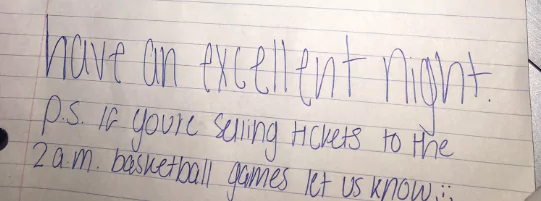 have an excellent night.
p.s. if you're selling tickets to the
2 a.m. basketball games let us know.